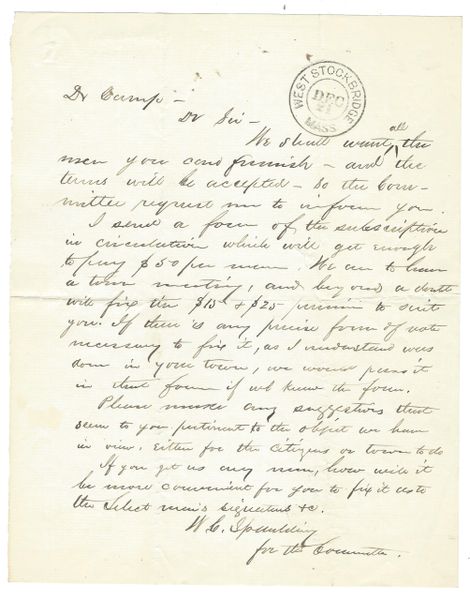 WEST STOCKBRIDGE
DEC
21
MASS.
Dr Camp –
Dr Sir –
We shall want all the
men you can furnish – and the
terms will be accepted – So the Com-
mittee request me to inform you.
I send a form of the subscription
in circulation which will get enough
to pay $50 per man. We are to have
a town meeting, and beyond a doubt
will fix the $15 & $25 to suit
you. If there is any precise form of vote
necessary to fix it, as I understand was
done in your town, we would pass it
in that form if we knew the form.
Please make any suggestions that
seem to you pertinent to the object we have
in view. Either for the citizens or town to do
If you get us any men, how will it
be more convenient for you to fix it as to
the Select men's signature &c.
W. C. Spaulding
for the Committee.